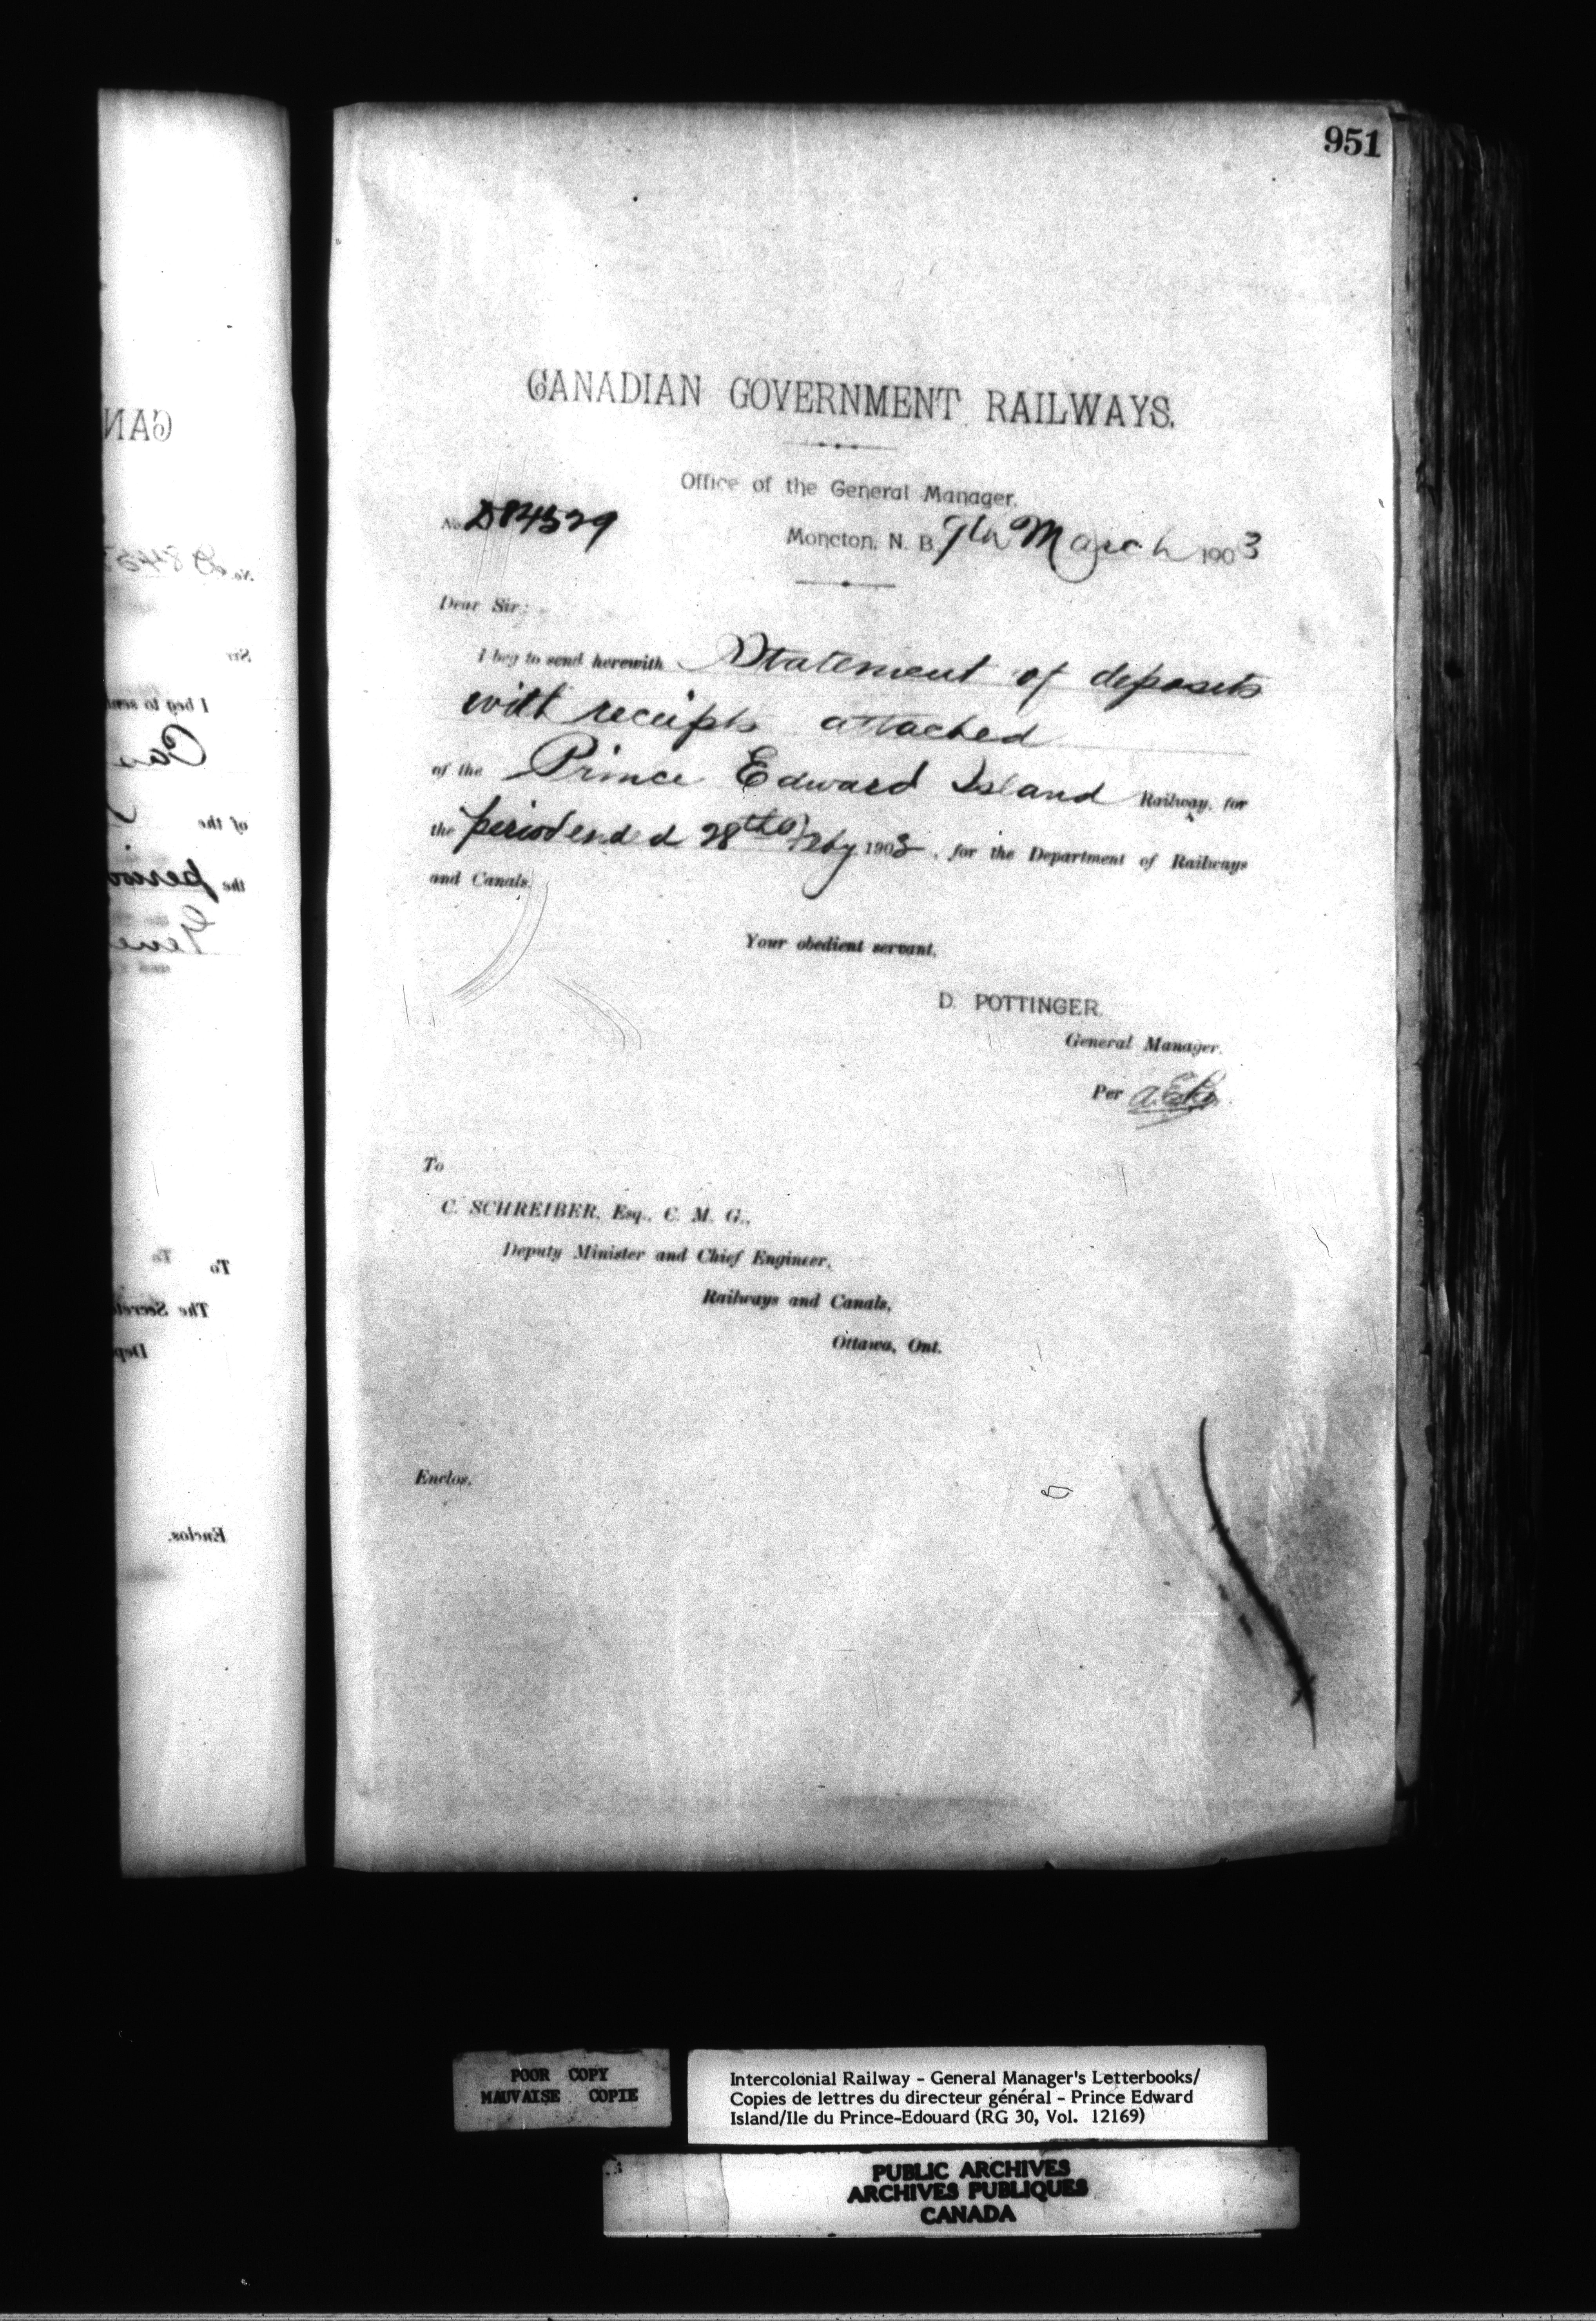 951
CANADIAN GOVERNMENT RAILWAYS.
Office of the General Manager,
No. D84529
Moncton, N. B. 9th March 1903
Dear Sir:
I beg to send herewith Statement of deposits
with receipts attached
of the Prince Edward Island Railway, for
the period ended 28th Feby 1903, for the Department of Railways
and Canals.
Your obedient servant,
D. POTTINGER.
General Manager.
Per
To
C. SCHREIBER, Esq., C. M. G.,
Deputy Minister and Chief Engineer,
Railways and Canals,
Ottawa, Ont.
Enclos.
POOR COPY
MAUVAISE COPIE
Intercolonial Railway - General Manager's Letterbooks/
Copies de lettres du directeur général - Prince Edward
Island/Ile du Prince-Edouard (RG 30, Vol. 12169)
PUBLIC ARCHIVES
ARCHIVES PUBLIQUES
CANADA